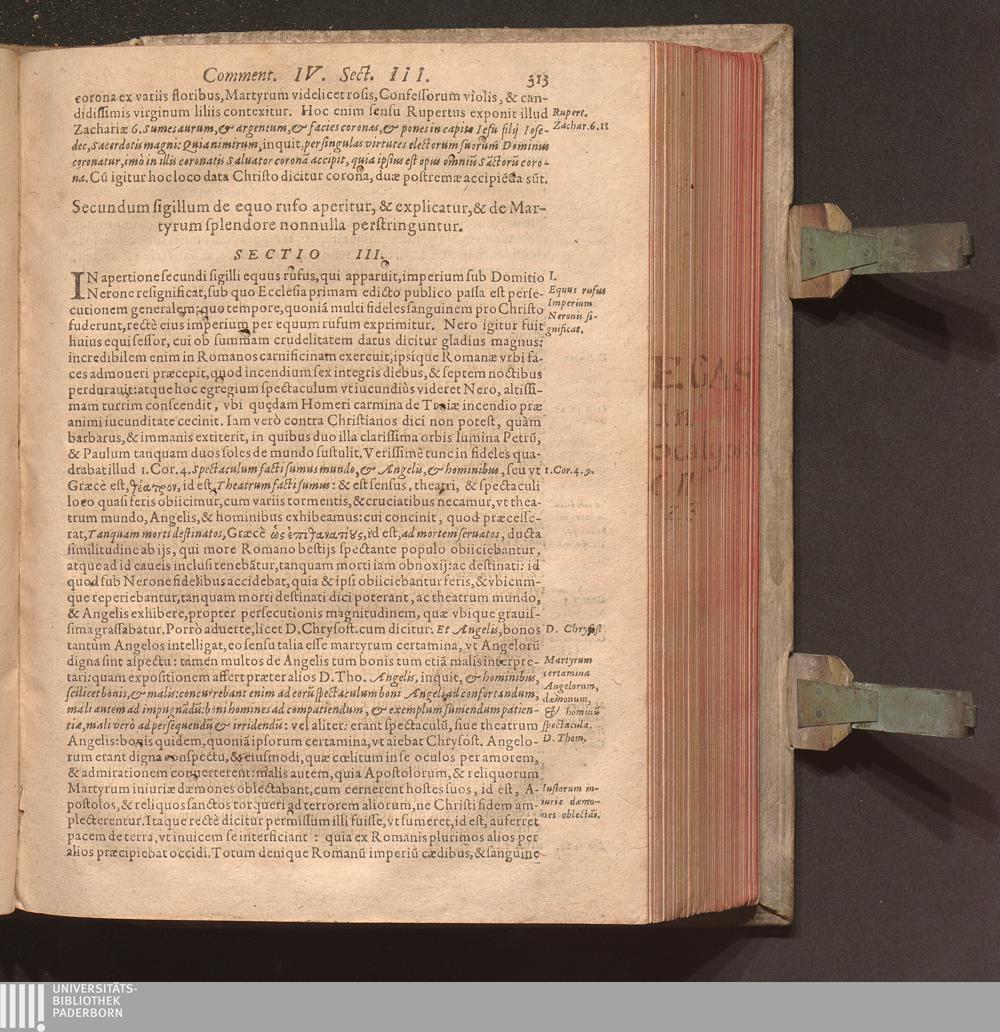 Comment. IV. Sect. III. 313
corona ex variis floribus, Martyrum videlicet rosis, Confessorum violis, & can-
didissimis virginum liliis contexitur. Hoc enim sensu Rupertus exponit illud
Zachariæ 6. Sumes aurum, & argentum, & facies coronas, & pones in capite Iesu filij Iose-
dec, Sacerdotis magni: Quia nimirum, inquit, per singulas virtutes electorum suorum Dominus
coronatur, imò in illis coronatis Saluator coronã accipit, quia ipsius est opus omniũ Sãctorũ coro-
na. Cũ igitur hoc loco data Christo dicitur corona, duæ postremæ accipiẽdæ sũt.
Rupert.
Zachar. 6. 11
Secundum sigillum de equo rufo aperitur, & explicatur, & de Mar-
tyrum splendore nonnulla perstringuntur.
SECTIO III.
IN apertione secundi sigilli equus rufus, qui apparuit, imperium sub Domitio
Nerone resignificat, sub quo Ecclesia primam edicto publico passa est perse-
cutionem generalem: quo tempore, quoniã multi fideles sanguinem pro Christo
fuderunt, rectè eius imperium per equum rufum exprimitur. Nero igitur fuit
huius equi sessor, cui ob summam crudelitatem datus dicitur gladius magnus:
incredibilem enim in Romanos carnificinam exercuit, ipsíque Romanæ vrbi fa-
ces admoueri præcepit, quod incendium sex integris diebus, & septem noctibus
perdurauit: atque hoc egregium spectaculum vt iucundiùs videret Nero, altissi-
mam turrim conscendit, vbi quędam Homeri carmina de Troiæ incendio præ
animi iucunditate cecinit. Iam verò contra Christianos dici non potest, quàm
barbarus, & immanis extiterit, in quibus duo illa clarissima orbis lumina Petrũ,
& Paulum tanquam duos soles de mundo sustulit. Verissimè tunc in fideles qua-
drabat illud 1. Cor. 4. Spectaculum facti sumus mundo, & Angelis, & hominibus, seu vt
Græcè est, θέατρον, id est, Theatrum facti sumus: & est sensus, theatri, & spectaculi
loco quasi feris obiicimur, cum variis tormentis, & cruciatibus necamur, vt thea-
trum mundo, Angelis, & hominibus exhibeamus: cui concinit, quod præcesse-
rat, Tanquam morti destinatos, Græcè ὡς ἐπιθανατίους, id est, ad mortem seruatos, ducta
similitudine ab ijs, qui more Romano bestijs spectante populo obiiciebantur,
atque ad id caueis inclusi tenebãtur, tanquam morti iam obnoxij: ac destinati: id
quod sub Nerone fidelibus accidebat, quia & ipsi obiiciebantur feris, & vbicum-
que reperiebantur, tanquam morti destinati dici poterant, ac theatrum mundo,
& Angelis exhibere, propter persecutionis magnitudinem, quæ vbique grauis-
sima grassabatur. Porrò aduerte, licet D. Chrysost. cum dicitur: Et Angelis, bonos
tantùm Angelos intelligat, eo sensu talia esse martyrum certamina, vt Angelorũ
digna sint aspectu: tamen multos de Angelis tum bonis tum etiã malis interpre-
tari: quam expositionem affert præter alios D. Tho. Angelis, inquit, & hominibus,
scilicet bonis, & malis: concurrebant enim ad eorũ spectaculum boni Angeli ad confortandum,
mali autem ad impugnãdũ: boni homines ad compatiendum, & exemplum sumendum patien-
tiæ, mali verò ad persequendũ & irridendũ: vel aliter: erant spectaculũ, siue theatrum
Angelis: bonis quidem, quoniã ipsorum certamina, vt aiebat Chrysost. Angelo-
rum erant digna conspectu, & eiusmodi, quæ cœlitum in se oculos per amorem,
& admirationem conuerterent: malis autem, quia Apostolorum, & reliquorum
Martyrum iniuriæ dæmones oblectabant, cum cernerent hostes suos, id est, A-
postolos, & reliquos sanctos torqueri ad terrorem aliorum, ne Christi fidem am-
plecterentur. Itaque rectè dicitur permissum illi fuisse, vt sumeret, id est, auferret
pacem de terra, vt inuicem se interficiant: quia ex Romanis plurimos alios per
alios præcipiebat occidi. Totum denique Romanũ imperiũ cædibus, & sanguine
I.
Equus rufus
Imperium
Neronis si-
gnificat.
1. Cor. 4. 9.
D. Chrysost
Martyrum
certamina
Angelorum,
dæmonum,
& hominũ
spectacula.
D. Thom.
Iustorum in-
iuriæ dæmo-
nes oblectãt.
UNIVERSITÄTS-
BIBLIOTHEK
PADERBORN